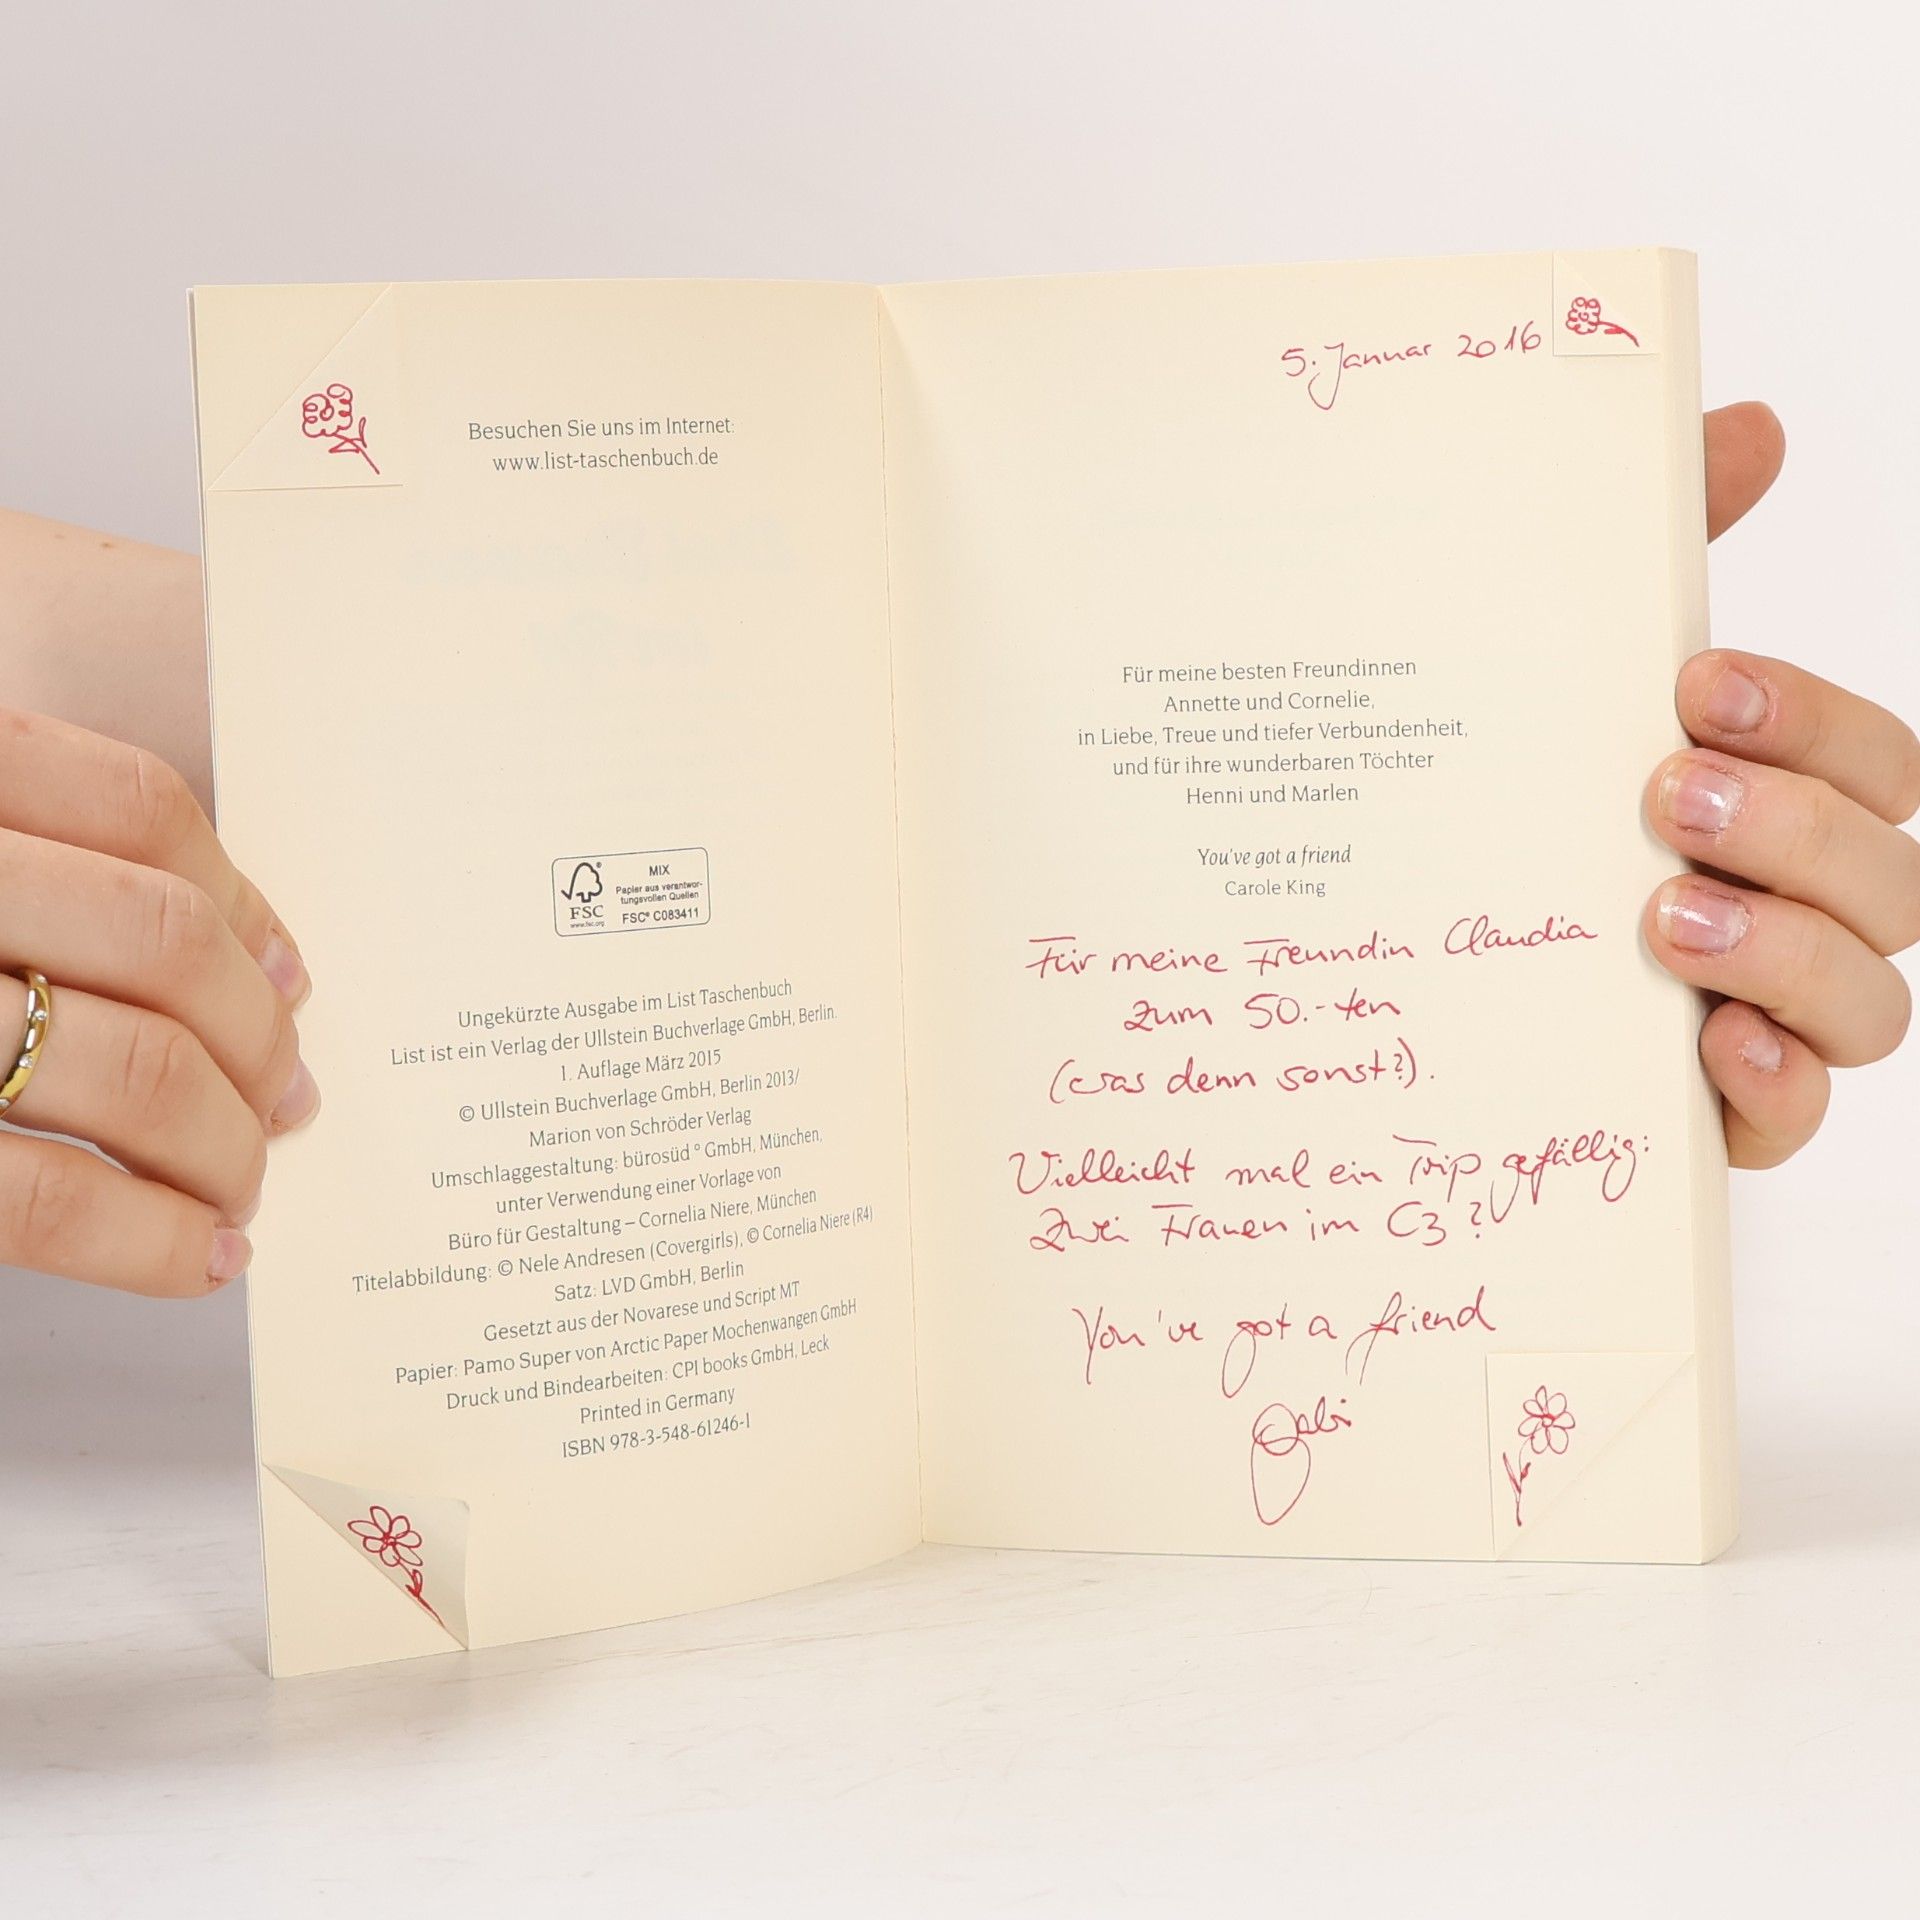 Besuchen Sie uns im Internet:
www.list-taschenbuch.de
MIX
Papier aus verantwor-
tungsvollen Quellen
FSC® C083411
FSC
www.fsc.org
Ungekürzte Ausgabe im List Taschenbuch
List ist ein Verlag der Ullstein Buchverlage GmbH, Berlin.
1. Auflage März 2015
© Ullstein Buchverlage GmbH, Berlin 2013/
Marion von Schröder Verlag
Umschlaggestaltung: bürosüd ° GmbH, München,
unter Verwendung einer Vorlage von
Büro für Gestaltung – Cornelia Niere, München
Titelabbildung: © Nele Andresen (Covergirls), © Cornelia Niere (R4)
Satz: LVD GmbH, Berlin
Gesetzt aus der Novarese und Script MT
Papier: Pamo Super von Arctic Paper Mochenwangen GmbH
Druck und Bindearbeiten: CPI books GmbH, Leck
Printed in Germany
ISBN 978-3-548-61246-1
5. Januar 2016
Für meine besten Freundinnen
Annette und Cornelie,
in Liebe, Treue und tiefer Verbundenheit,
und für ihre wunderbaren Töchter
Henni und Marlen
You've got a friend
Carole King
Für meine Freundin Claudia
zum 50.-ten
(was denn sonst?).
Vielleicht mal ein Trip gefällig:
Zwei Frauen im C3?
You've got a friend
Gabi